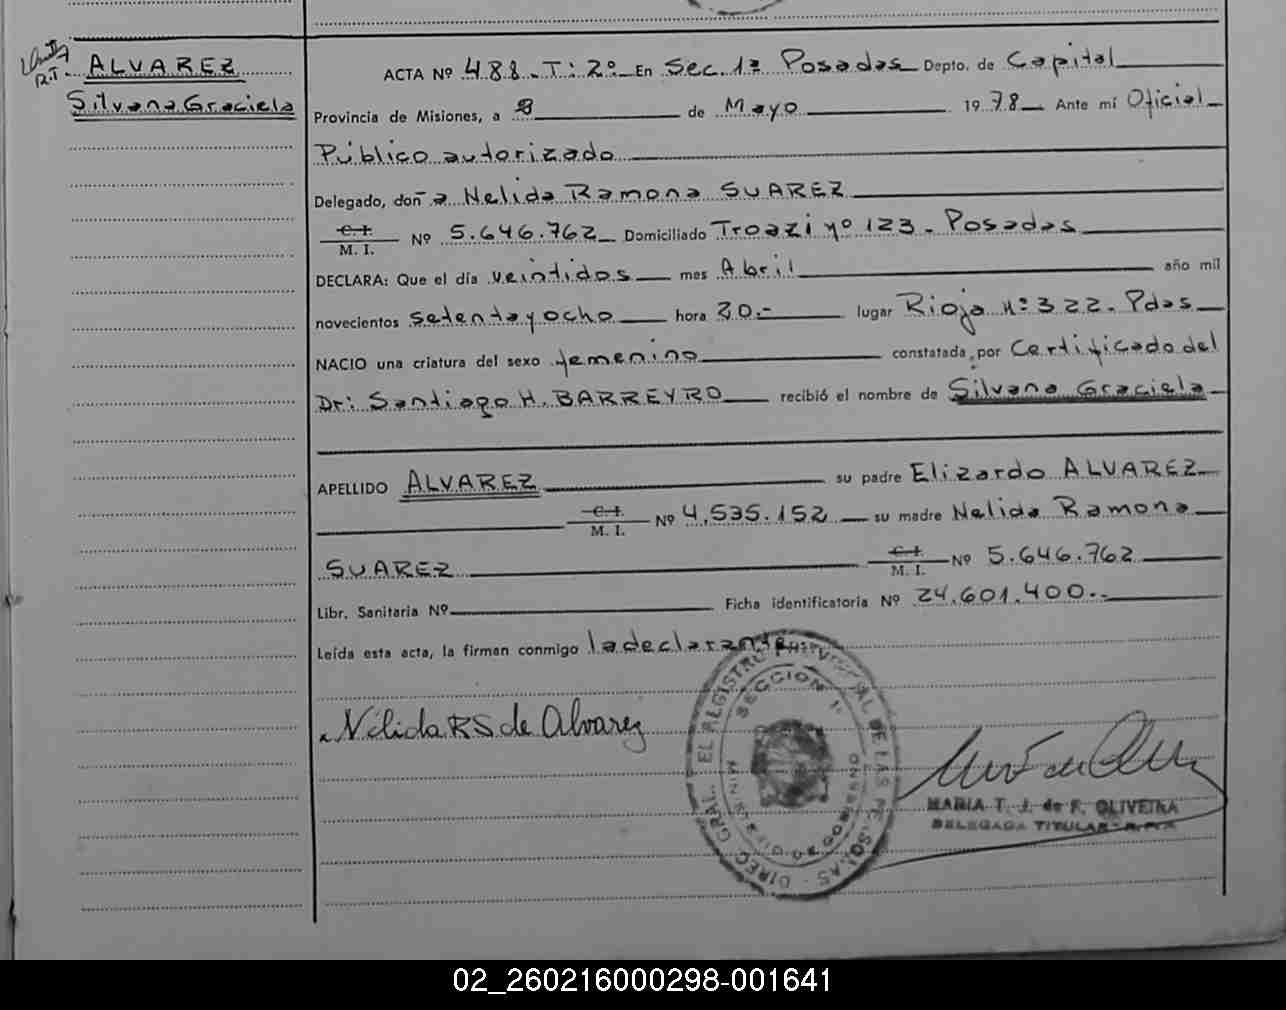 ALVAREZ
Silvana Graciela
ACTA Nº 488. T: 2º En Sec. 1ª Posadas Depto. de Capital
Provincia de Misiones, a 8 de Mayo 1978 Ante mí Oficial
Público autorizado
Delegado, don a Nelida Ramona SUAREZ
C. I.
M. I. Nº 5.646.762 Domiciliado Troazi nº 123. Posadas
DECLARA: Que el día veintidos mes Abril año mil
novecientos setenta y ocho hora 20.- lugar Rioja Nº: 322. Pdas
NACIO una criatura del sexo femenino constatada por Certificado del
Dr: Santiago H. BARREYRO recibió el nombre de Silvana Graciela
APELLIDO ALVAREZ su padre Elizardo ALVAREZ
C. I.
M. I. Nº 4.535.152 su madre Nelida Ramona
SUAREZ C. I.
M. I. Nº 5.646.762
Libr. Sanitaria Nº Ficha identificatoria Nº 24.601.400.-
Leída esta acta, la firman conmigo la declarante.
Nélida R S de Alvarez
SECCION 1ª
MINISTERIO DE GOBIERNO
MARIA T. J. de F. OLIVEIRA
DELEGADA TITULAR
02_260216000298-001641